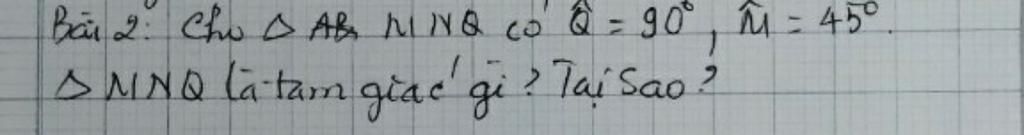 Bài 2: Cho △ MNQ có Q̂ = 90°, M̂ = 45°.
△ MNQ là tam giác gì? Tại Sao?